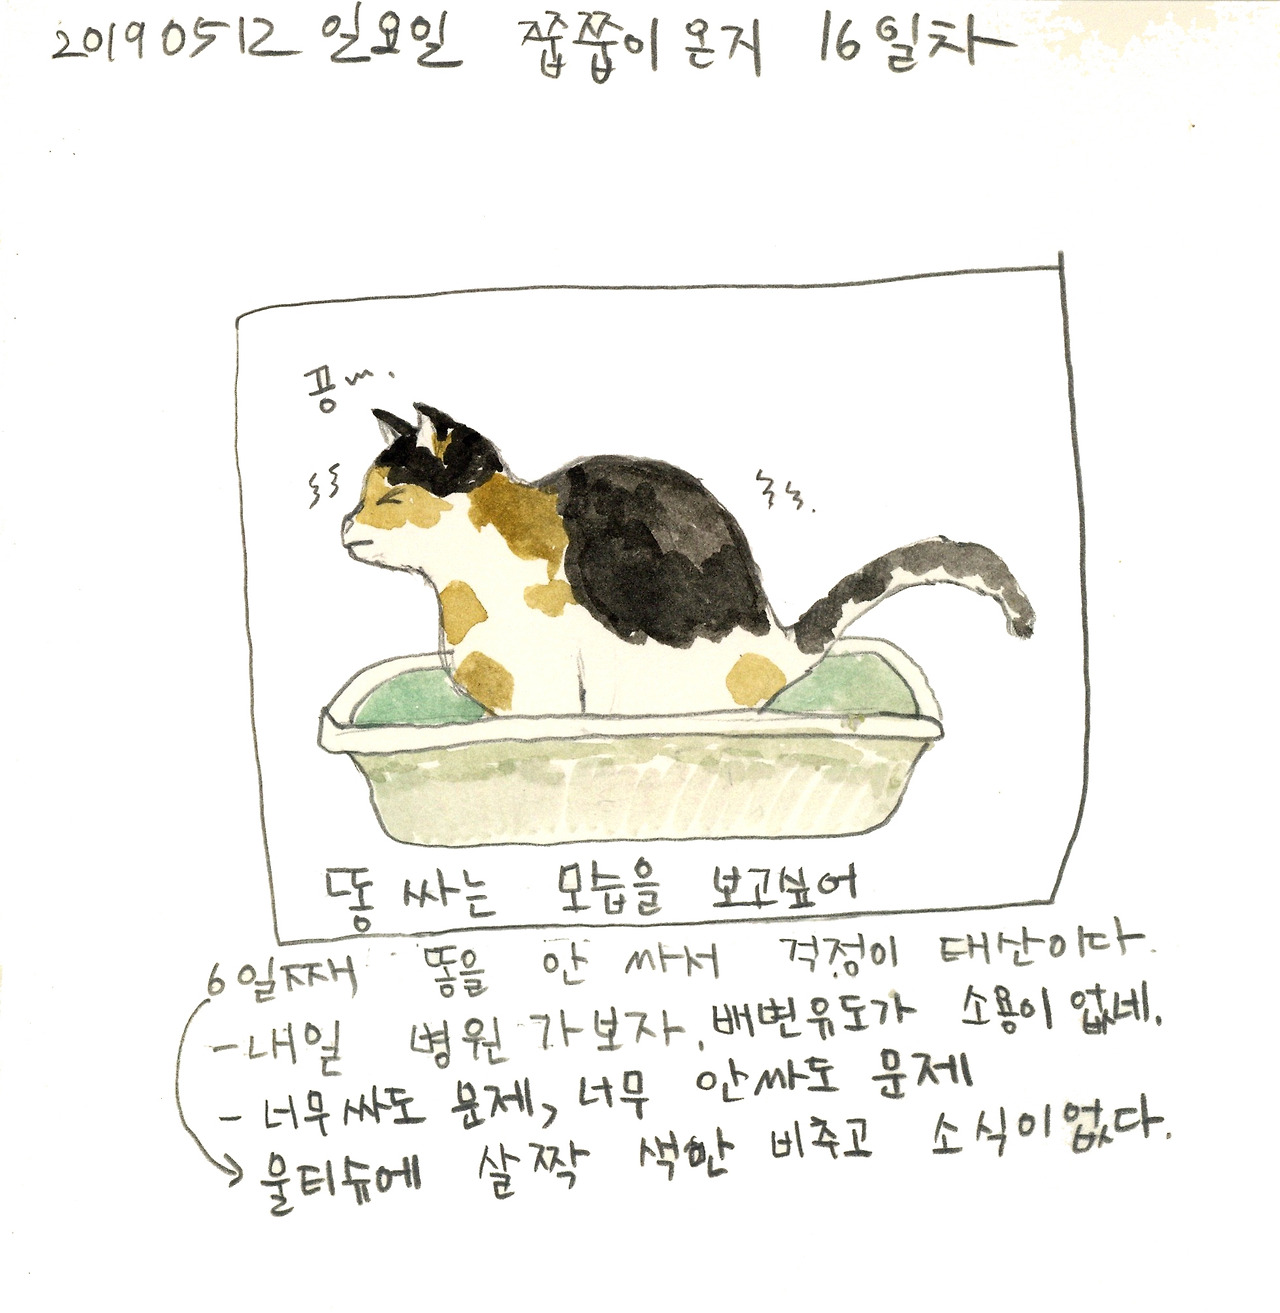 20190512 일요일 쯉쯉이 온지 16일차
끙~.
똥 싸는 모습을 보고싶어
6일째 똥을 안 싸서 걱정이 태산이다.
-내일 병원 가보자. 배변유도가 소용이 없네.
- 너무 싸도 문제, 너무 안싸도 문제
물티슈에 살짝 색만 비추고 소식이 없다.